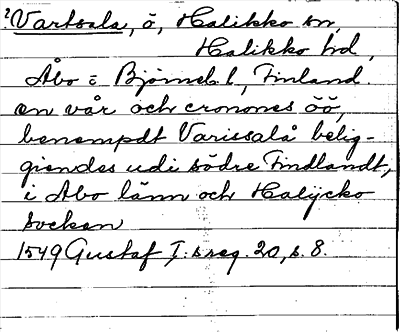 ?Vartsala, ö, Halikko sn,
Halikko hd,
Åbo o Björneb. l, Finland.
en vår och cronones öö,
benempdt Varissalå belig-
giendes udi södre Findlandt,
i Åbo länn och Halijcko
Socken
1549 Gustaf I:s reg. 20, s. 8.